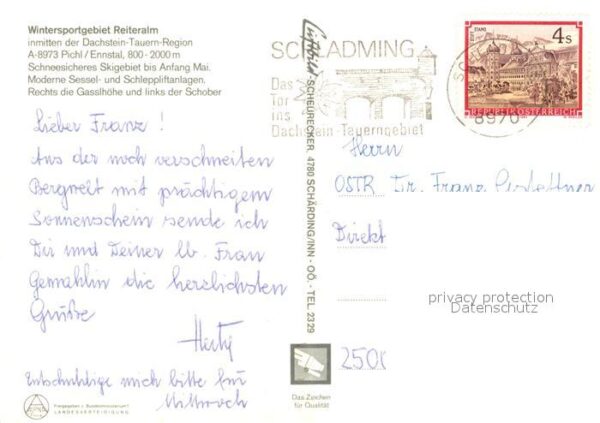 Wintersportgebiet Reiteralm
inmitten der Dachstein-Tauern-Region
A-8973 Pichl / Ennstal, 800 - 2000 m
Schneesicheres Skigebiet bis Anfang Mai.
Moderne Sessel- und Schleppliftanlagen.
Rechts die Gasslhöhe und links der Schober
Lieber Franz!
Aus der noch verschneiten
Bergwelt mit prächtigem
Sonnenschein sende ich
Dir und Deiner lb. Frau
Gemahlin die herzlichsten
Grüße
Entschuldige mich bitte für
Mittwoch
Freigegeben v. Bundesministerium f.
LANDESVERTEIDIGUNG
Luftbild SCHEURECKER 4780 SCHÄRDING/INN - OÖ. - TEL. 23 29
Das Zeichen
für Qualität
SCHLADMING
Das
Tor
ins
Dachstein-Tauerngebiet
8970
4 S
STIFT STAMS
REPUBLIK ÖSTERREICH
Herrn
OSTR Dr. Franz
Direkt
privacy protection
Datenschutz